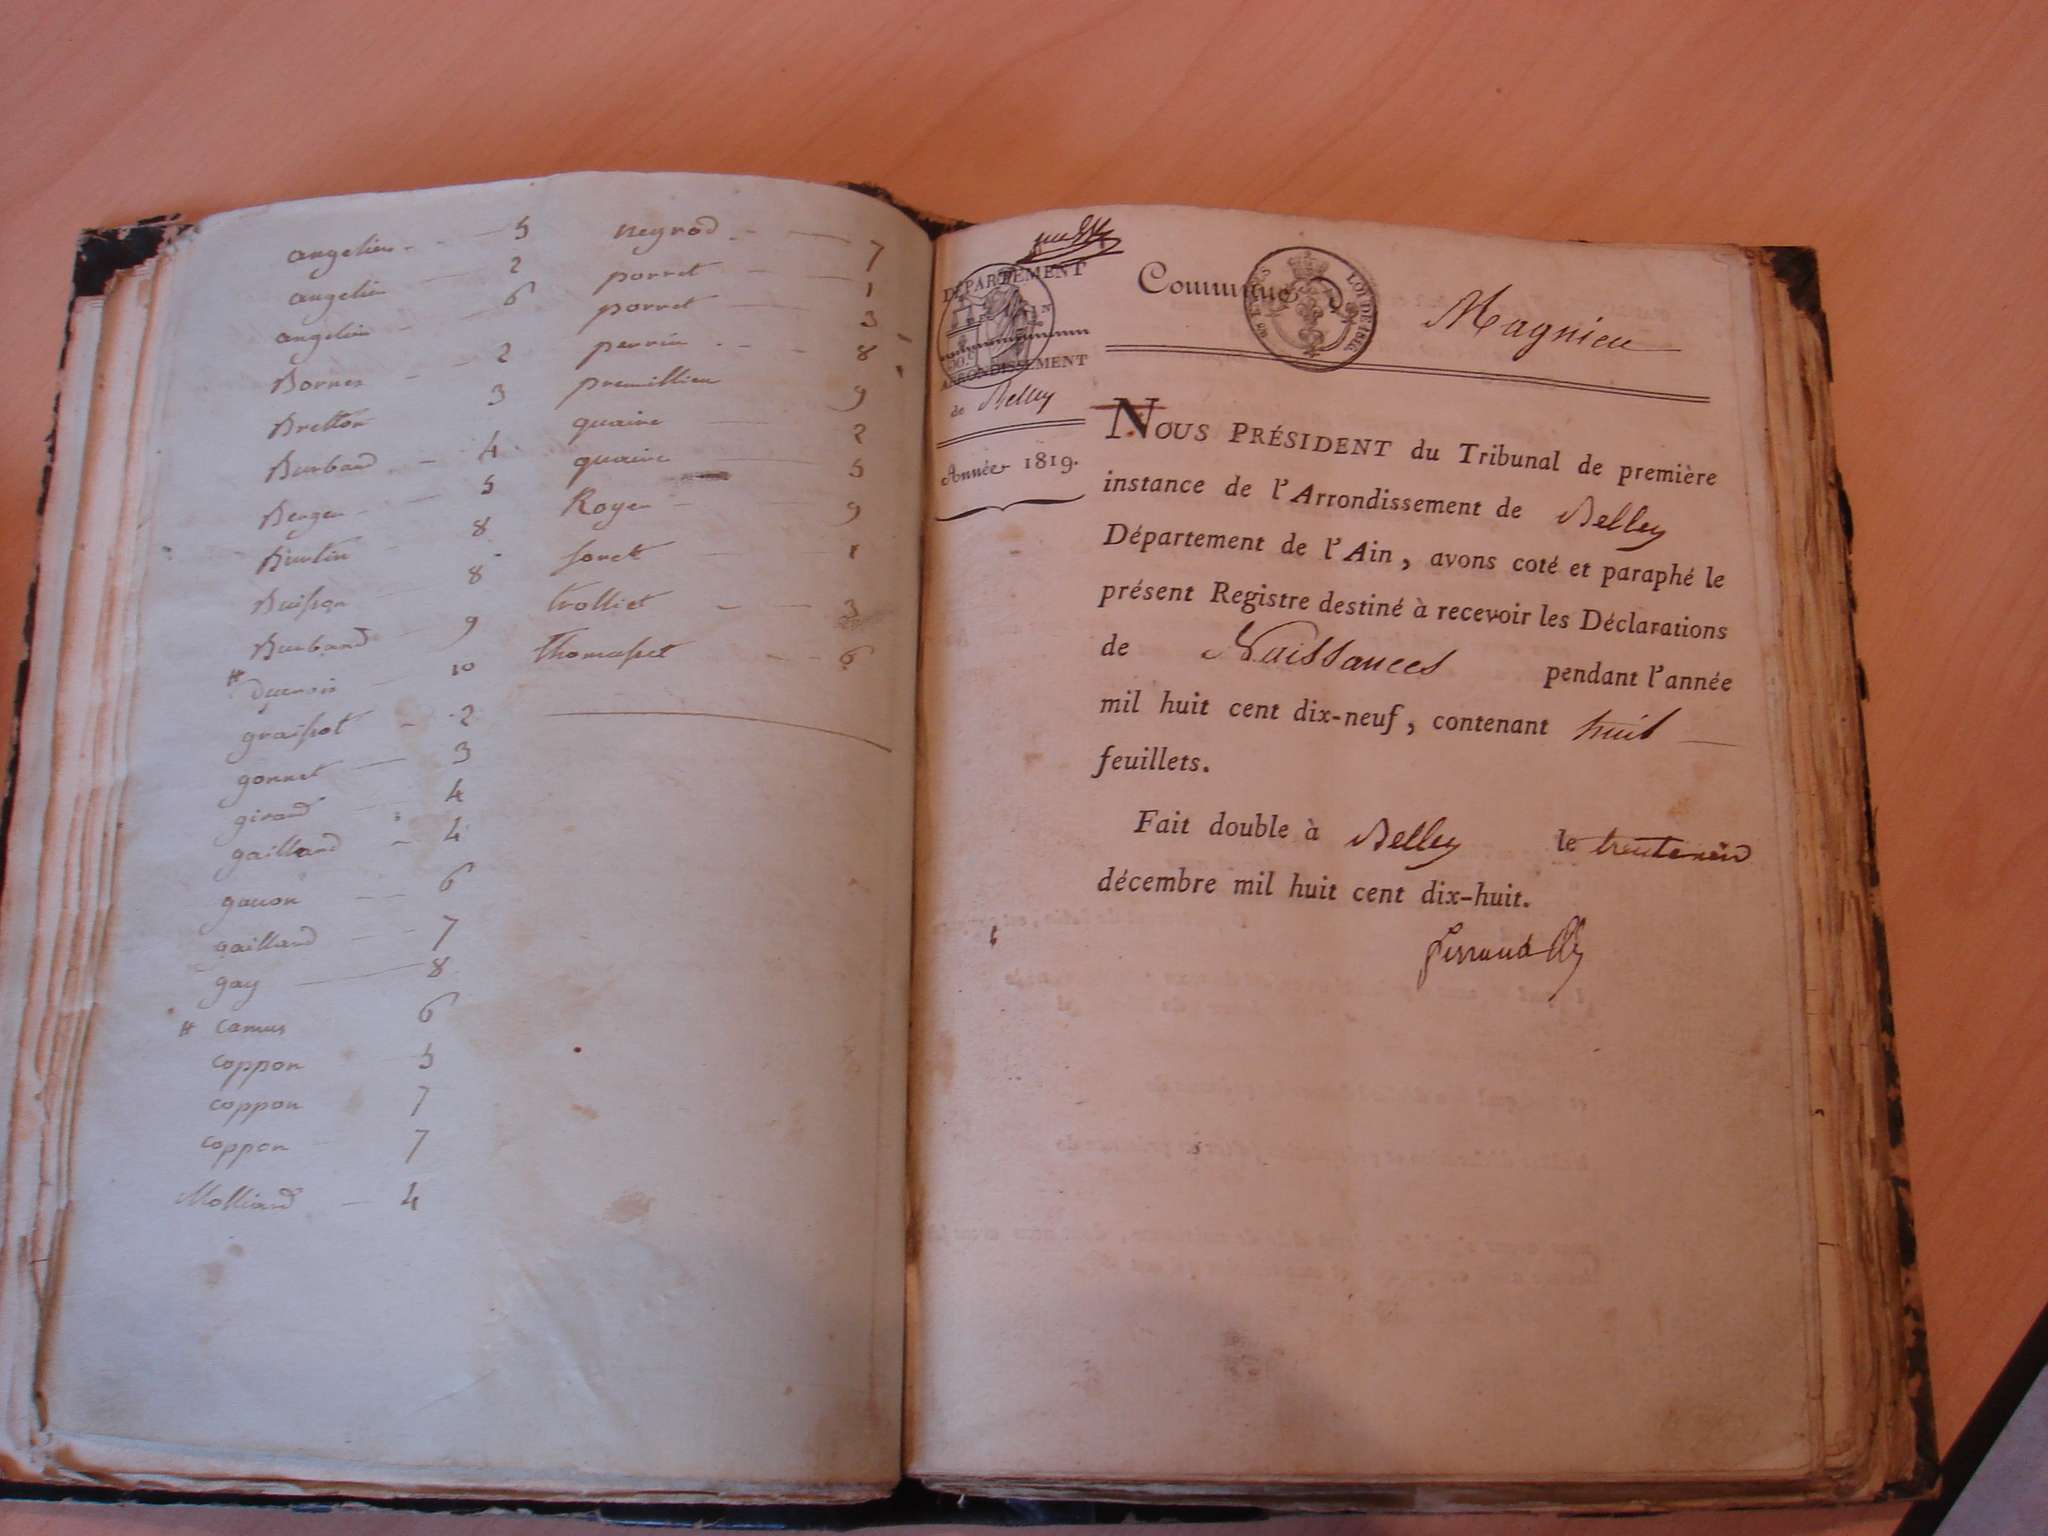 angelin 5
angelin 2
angelin 6
Bornes 2
Bretton 3
Burband 4
Berger 5
Burtin 8
Buisson 8
Burband 9
10
graissot 2
gonnet 3
girand 4
gailland 4
6
gailland 7
gay 8
# camus 6
coppon 5
coppon 7
coppon 7
Molliard 4
neyrod 7
porret 1
porret 3
perrin 8
premillieu 9
quaine 2
quaine 5
Royer 9
soret 1
trolliet 3
thomasset 6
DÉPARTEMENT
DE L'AIN
ARRONDISSEMENT
de Belley
Année 1819.
Commune de Magnieu
LOI DE 1816
NOUS PRÉSIDENT du Tribunal de première
instance de l'Arrondissement de Belley
Département de l'Ain, avons coté et paraphé le
présent Registre destiné à recevoir les Déclarations
de Naissances pendant l'année
mil huit cent dix-neuf, contenant huit
feuillets.
Fait double à Belley le
décembre mil huit cent dix-huit.